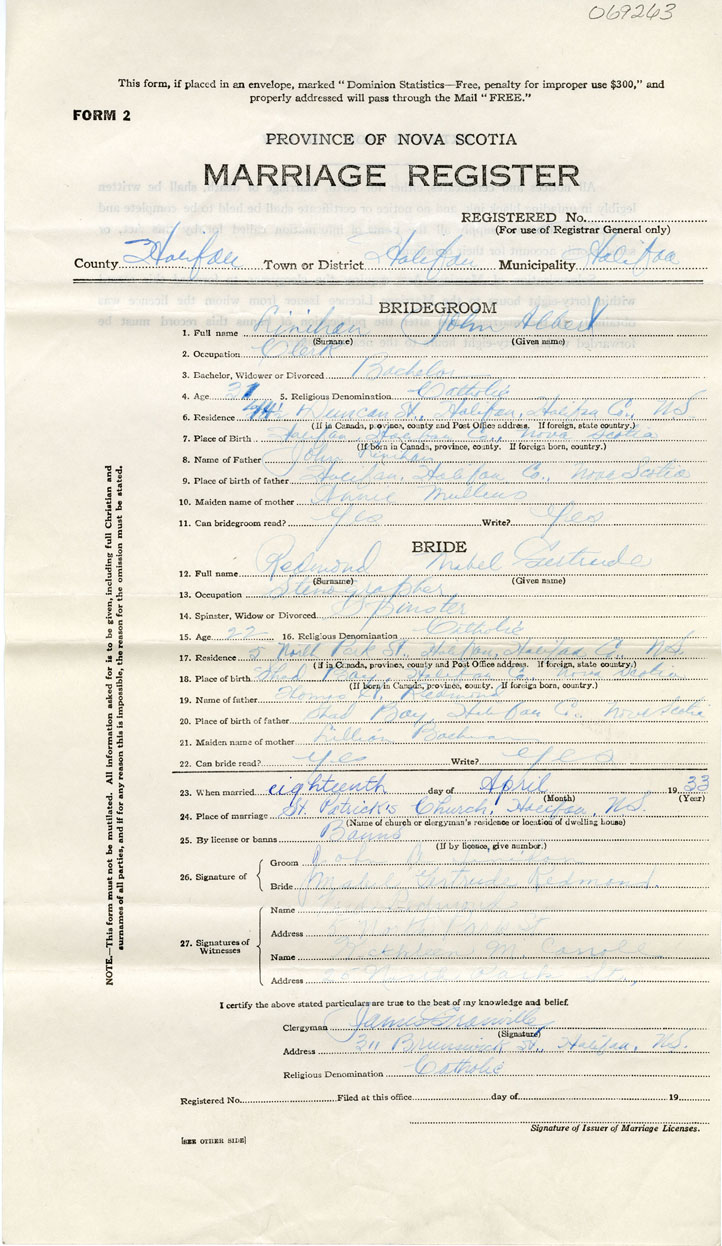 069263
This form, if placed in an envelope, marked "Dominion Statistics—Free, penalty for improper use $300," and
properly addressed will pass through the Mail "FREE."
FORM 2
PROVINCE OF NOVA SCOTIA
MARRIAGE REGISTER
REGISTERED No.
(For use of Registrar General only)
County Halifax Town or District Halifax Municipality Halifax
BRIDEGROOM
1. Full name Linihan John Albert
(Surname) (Given name)
2. Occupation Clerk
3. Bachelor, Widower or Divorced Bachelor
4. Age 31 5. Religious Denomination Catholic
6. Residence 44 Duncan St., Halifax, Halifax Co., N.S.
(If in Canada, province, county and Post Office address. If foreign, state country.)
7. Place of Birth Halifax, Halifax Co., Nova Scotia
(If born in Canada, province, county. If foreign born, country.)
8. Name of Father John Linihan
9. Place of birth of father Halifax, Halifax Co., Nova Scotia
10. Maiden name of mother Annie Mullins
11. Can bridegroom read? Yes Write? Yes
BRIDE
12. Full name Redmond Mabel Gertrude
(Surname) (Given name)
13. Occupation Stenographer
14. Spinster, Widow or Divorced Spinster
15. Age 22 16. Religious Denomination Catholic
17. Residence 5 North Park St., Halifax, Halifax Co., N.S.
(If in Canada, province, county and Post Office address. If foreign, state country.)
18. Place of birth Shad Bay, Halifax Co., Nova Scotia
(If born in Canada, province, county. If foreign born, country.)
19. Name of father Thomas Redmond
20. Place of birth of father Shad Bay, Halifax Co., Nova Scotia
21. Maiden name of mother Lillian
22. Can bride read? Yes Write? Yes
23. When married eighteenth day of April 1933
(Month) (Year)
24. Place of marriage St. Patrick's Church, Halifax, N.S.
(Name of church or clergyman's residence or location of dwelling house)
25. By license or banns Banns
(If by licence, give number.)
26. Signature of
Groom John
Bride Mabel Gertrude Redmond.
27. Signatures of Witnesses
Name Redmond
Address North Park St
Name Kathleen M.
Address Park St.,
I certify the above stated particulars are true to the best of my knowledge and belief.
Clergyman James Granville
(Signature)
Address 311 Brunswick St., Halifax, N.S.
Religious Denomination Catholic
Registered No. Filed at this office day of 19
Signature of Issuer of Marriage Licenses.
[SEE OTHER SIDE]
NOTE.—This form must not be mutilated. All information asked for is to be given, including full Christian and
surnames of all parties, and if for any reason this is impossible, the reason for the omission must be stated.